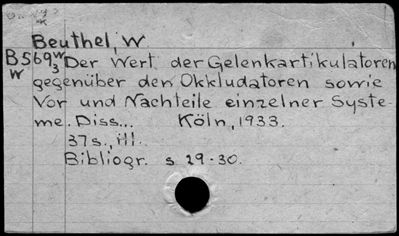 Beuthel, W
B569w3 Der Wert der Gelenkartikulatoren
W gegenüber den Okkludatoren sowie
Vor und Nachteile einzelner Syste-
me. Diss... Köln, 1933.
37s., ill.
Bibliogr. s 29-30.